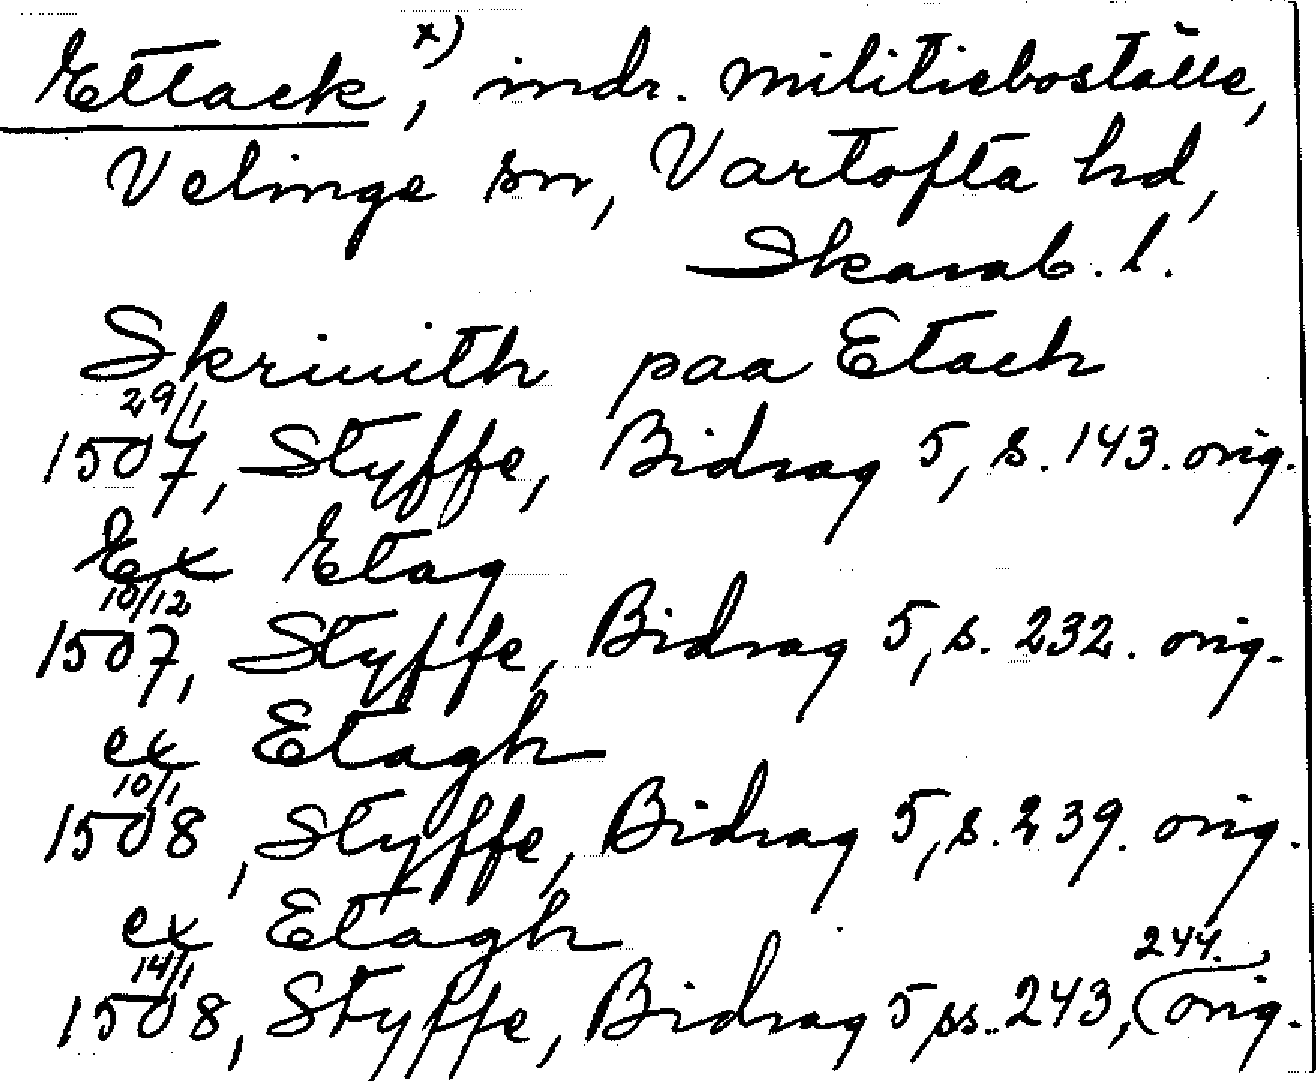 Ettack x), indr. militieboställe,
Velinge sn, Vartofta hd,
Skarab. l.
Skriuith paa Etack
29/1
1507, Styffe, Bidrag 5, s. 143. orig.
Ex Etag
10/12
1507, Styffe, Bidrag 5, s. 232. orig.
ex Etagh
10/1
1508, Styffe, Bidrag 5, s. 239. orig.
ex Etagh
14/1 244.
1508, Styffe, Bidrag 5, ss. 243, (orig.